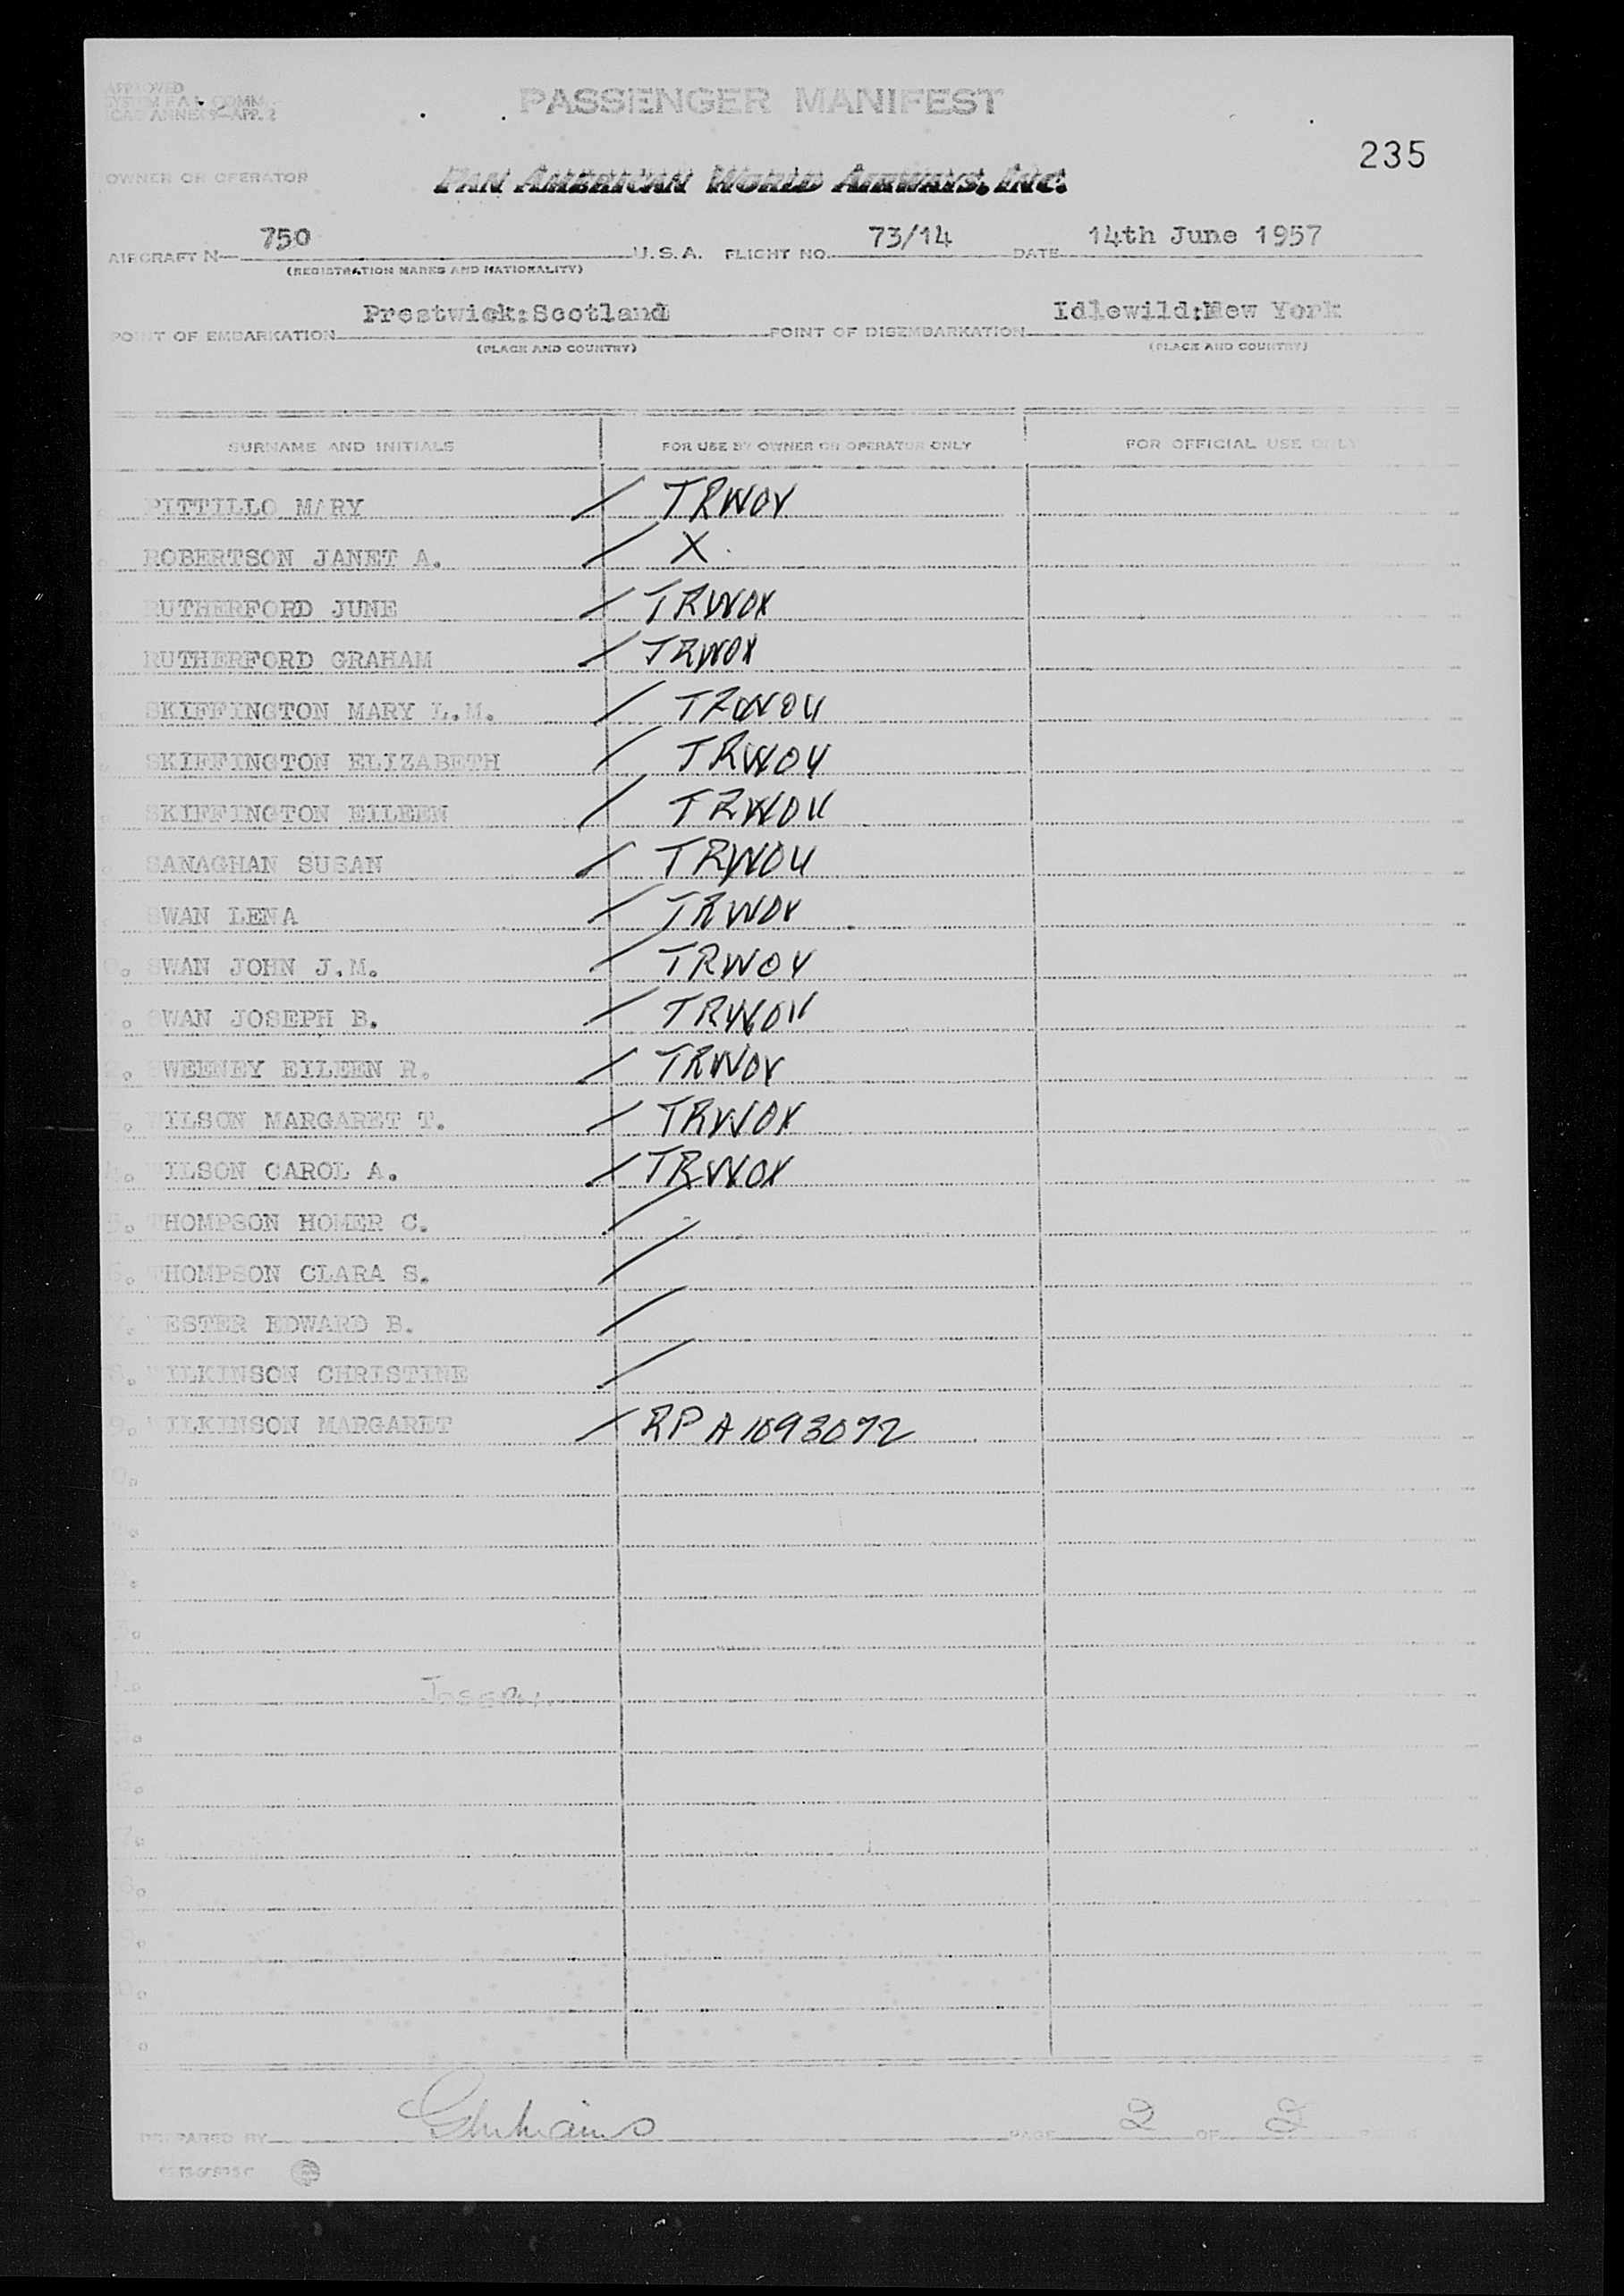 APPROVED
SYSTEM F.A.L. COMM.
ICAO ANNEX 9—APP. 2
PASSENGER MANIFEST
235
OWNER OR OPERATOR
PAN AMERICAN WORLD AIRWAYS, INC.
AIRCRAFT N— 750 U.S.A. FLIGHT NO. 73/14 DATE 14th June 1957
(REGISTRATION MARKS AND NATIONALITY)
POINT OF EMBARKATION Prestwick:Scotland POINT OF DISEMBARKATION Idlewild:New York
(PLACE AND COUNTRY) (PLACE AND COUNTRY)
SURNAME AND INITIALS FOR USE BY OWNER OR OPERATOR ONLY FOR OFFICIAL USE ONLY
PITTILLO MARY / TRWOV
ROBERTSON JANET A. / X
RUTHERFORD JUNE / TRWOX
RUTHERFORD GRAHAM / TRWOX
SKIFFINGTON MARY L.M. / TRWOU
SKIFFINGTON ELIZABETH / TRWOU
SKIFFINGTON EILEEN / TRWOU
SANAGHAN SUSAN / TRWOU
SWAN LENA / TRWOV
SWAN JOHN J.M. / TRWOV
SWAN JOSEPH B. / TRWOV
SWEENEY EILEEN R. / TRWOV
WILSON MARGARET T. / TRWOX
WILSON CAROL A. / TRWOX
THOMPSON HOMER C. /
THOMPSON CLARA S. /
ESTER EDWARD B. /
WILKINSON CHRISTINE /
WILKINSON MARGARET / RP A1093072
JOSEPH
PREPARED BY PAGE 2 OF 2